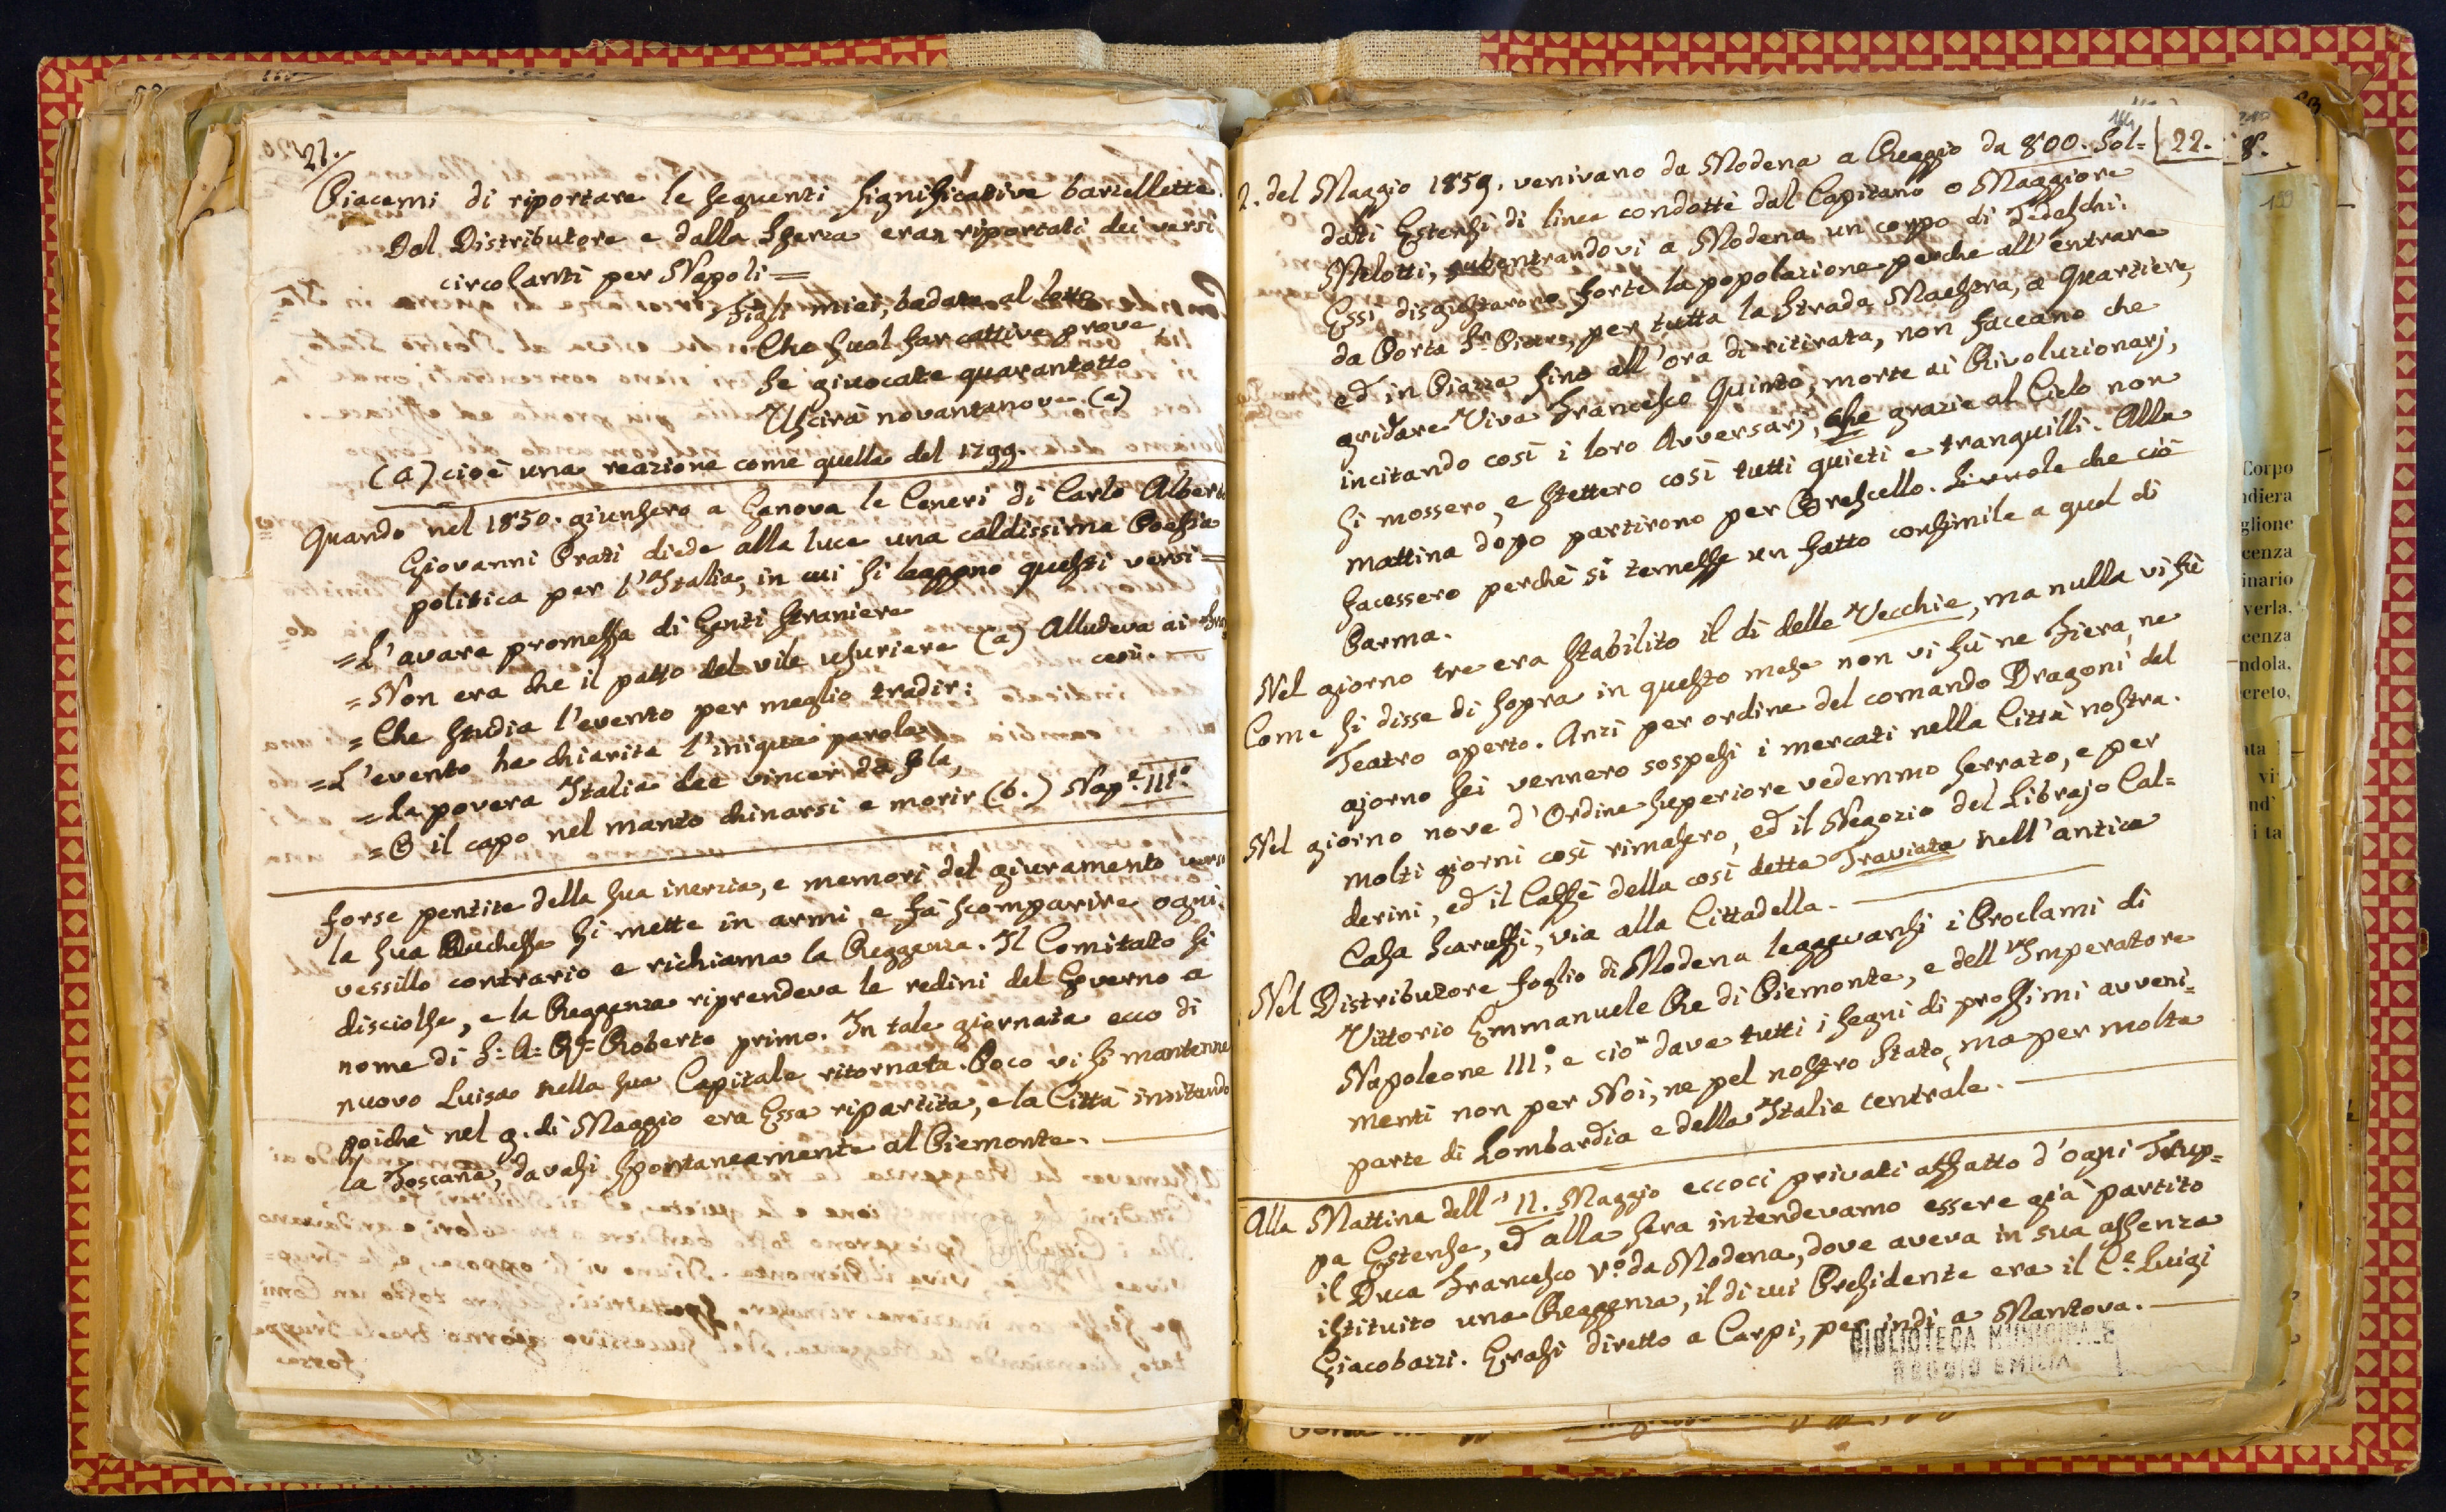 21.
Piacemi di riportare le seguenti significative barzellette.
Dal Distributore e dalla Sferza eran riportati dei versi
circolanti per Napoli =
Figli miei, badate al lotto
Che suol far cattive prove
Se giuocate quarantotto
Uscirà novantanove. (a)
(a) cioè una reazione come quella del 1799.
Quando nel 1850. giunsero a Genova le Ceneri di Carlo Alberto
Giovanni Prati diede alla luce una caldissima Poesia
politica per l'Italia, in cui si leggono questi versi =
= L'avara promessa di Genti straniere
= Non era che il patto del vile usuriere (a) Alludeva ai Fran
cesi.
= Che studia l'evento per meglio tradir:
= L'evento ha chiarita l'iniqua parola
= La povera Italia dee vincer da sola,
= O il capo nel manto chinarsi e morir (b.) Nap.e III.o
forse pentita della sua inerzia, e memori del giuramento verso
la sua Duchessa si mette in armi e fà scomparire ogni
vessillo contrario e richiama la Reggenza. Il Comitato si
disciolse, e la Reggenza riprendeva le redini del Governo a
nome di S: A: R: Roberto primo. In tale giornata ecco di
nuovo Luisa nella sua Capitale ritornata. Poco vi si mantenne
poichè nel 9. di Maggio era Essa ripartita, e la Città imitando
la Toscana, davasi spontaneamente al Piemonte.
22.
8.
2. del Maggio 1859. venivano da Modena a Reggio da 800. Sol=
dati Estensi di linea condotti dal Capitano o Maggiore
Melotti, subentrandovi a Modena un corpo di Tedeschi.
Essi disgustarono forte la popolazione perche all'entrare
da Porta Sn Pietro, per tutta la Strada Maestra, a Quartiere,
ed in Piazza fino all'ora di ritirata, non faceano che
gridare Viva Francesco Quinto, morte ai Rivoluzionarj,
incitando così i loro Avversarj, che grazie al Cielo non
si mossero, e stettero così tutti quieti e tranquilli. Alla
mattina dopo partirono per Brescello. Si vuole che ciò
facessero perchè si temesse un fatto consimile a quel di
Parma.
Nel giorno tre era stabilito il dì delle Vecchie, ma nulla vi fù
Come si disse di sopra in questo mese non vi fù ne Fiera, ne
Teatro aperto. Anzi per ordine del comando Dragoni del
giorno sei vennero sospesi i mercati nella Città nostra.
Nel giorno nove d'Ordine superiore vedemmo serrato, e per
molti giorni così rimasero, ed il Negozio del Librajo Cal=
derini, ed il Caffè della così detta Traviata nell'antica
Casa Scaruffi, via alla Cittadella.
Nel Distributore foglio di Modena leggevansi i Proclami di
Vittorio Emmanuele Re di Piemonte, e dell'Imperatore
Napoleone III.o, e ciò dava tutti i segni di prossimi avveni=
menti non per Noi, ne pel nostro Stato, ma per molta
parte di Lombardia e della Italia centrale.
Alla Mattina dell' 11. Maggio eccoci privati affatto d'ogni Trup=
pa Estense, ed alla sera intendevamo essere già partito
il Duca Francesco V.o da Modena, dove aveva in sua assenza
istituito una Reggenza, il di cui Presidente era il C.e Luigi
Giacobazzi. Erasi diretto a Carpi, per indi a Mantova.
BIBLIOTECA MUNICIPALE
REGGIO EMILIA
Corpo
ndiera
glione
cenza
inario
verla.
cenza
ndola.
creto,